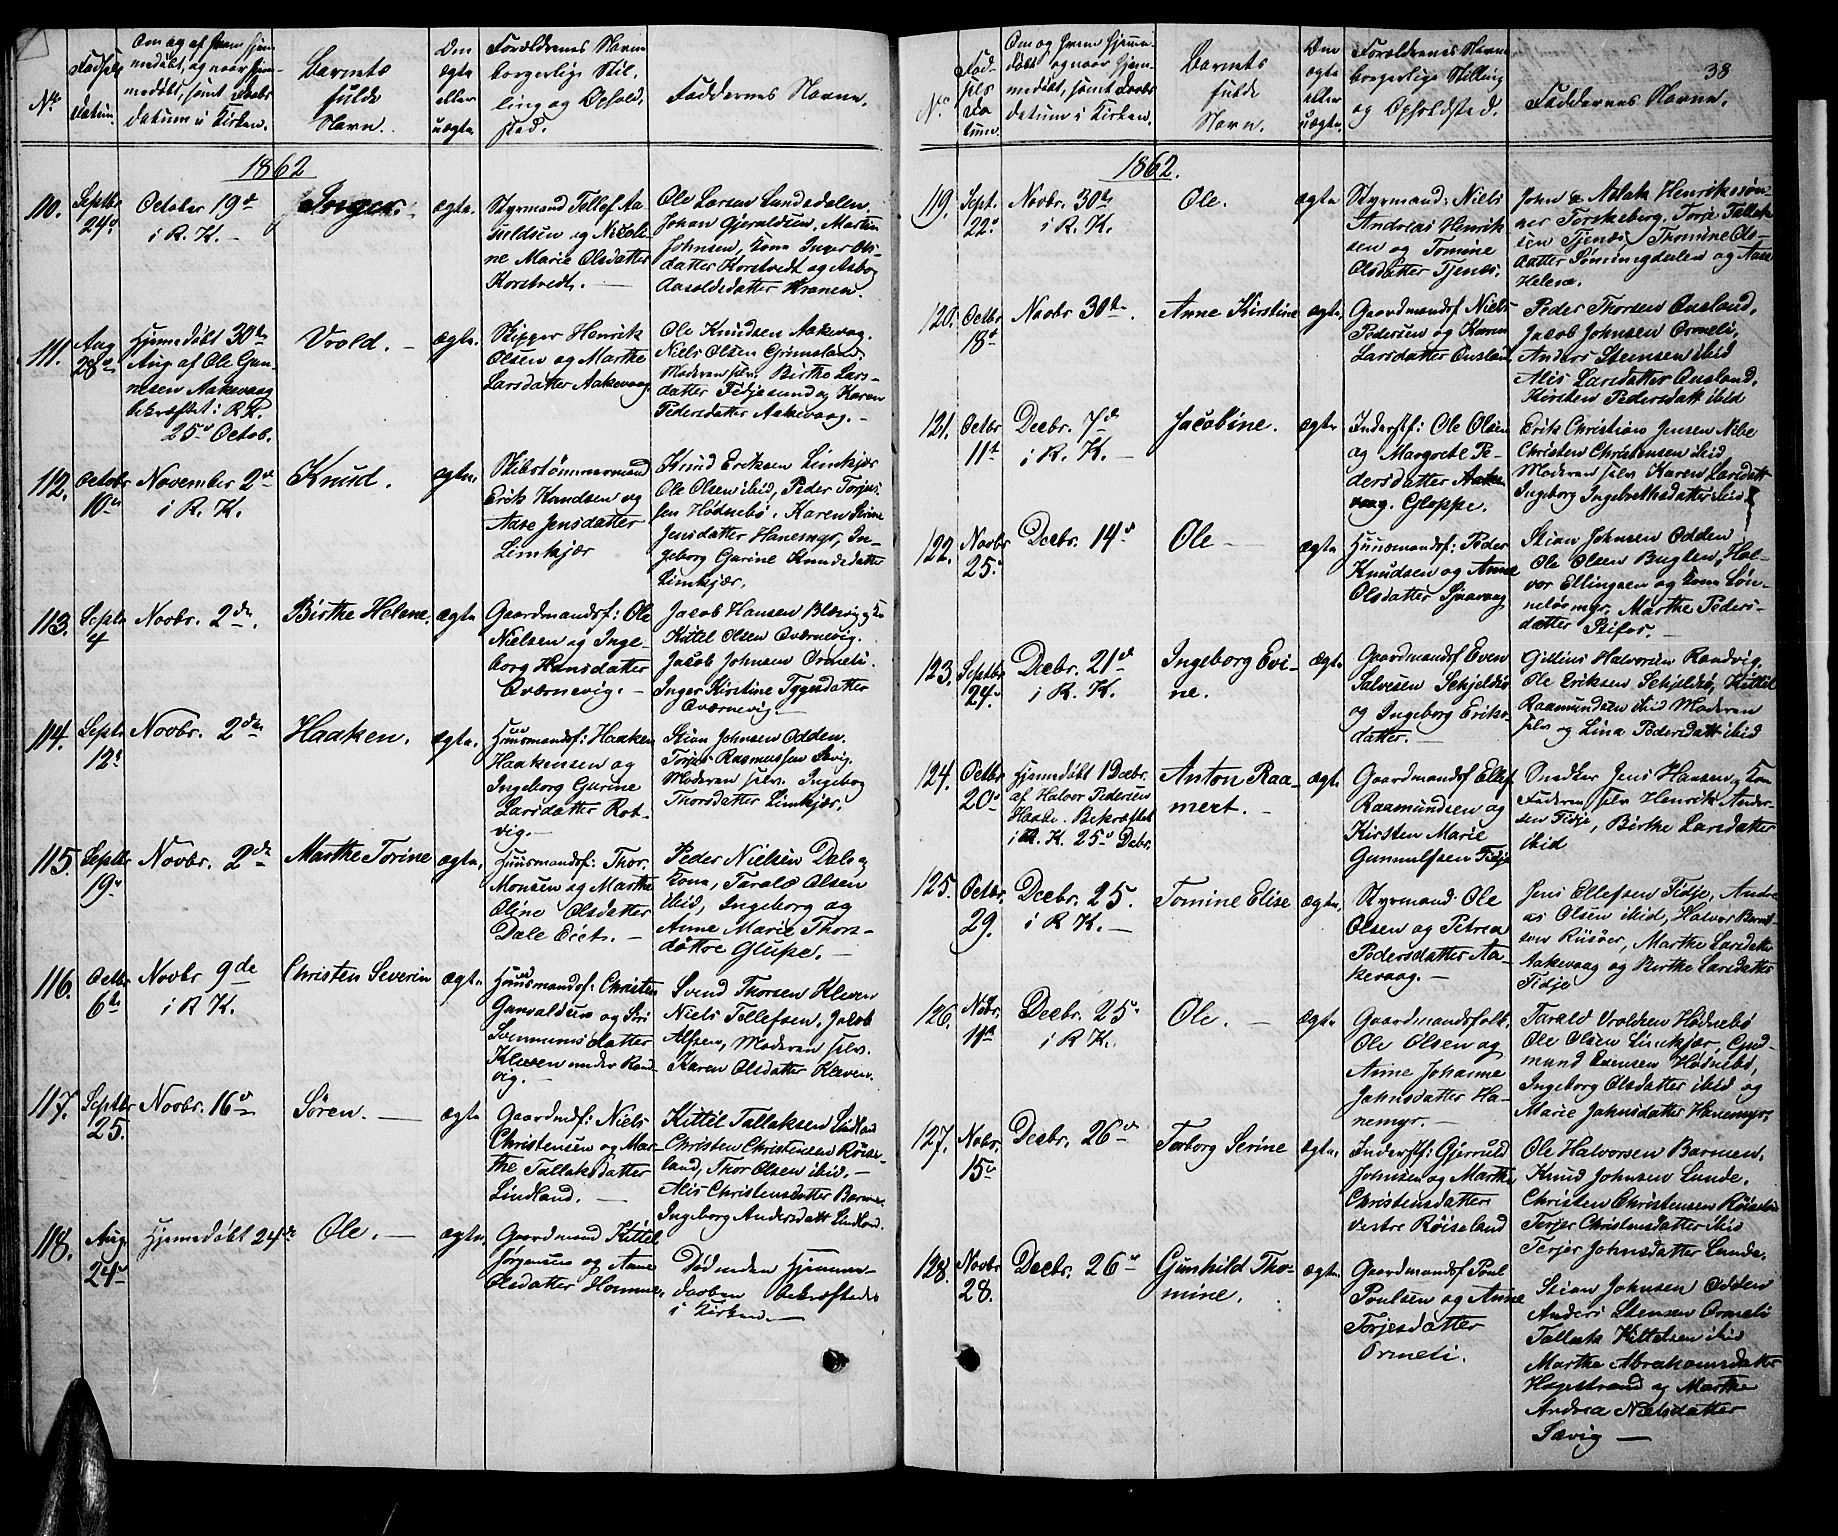 No
Fødsels
Datum.
Om og af hvem hjem-
medøbt, og naar hjem-
medøbt, samt Daabs
datum i Kirken.
Barnets
fulde
Navn.
Om
ægte
eller
uægte
Forældrenes Navn
borgerlige Stil-
ling og Ophold-
sted.
Faddernes Navne.
1862
110.
Septbr
24d
October 19d
i R. K. —
Inger.
ægte.
Styrmand Tellef Aa-
suldsen og Nicoli-
ne Marie Olsdatter
Korstvedt. —
Ole Larsen Lundsdalen
Johan Gjeruldsen, Morten
Johnsen, Kona Inger Ols-
datter Korstvedt og Asborg
Aasoldsdatter Hranen.
111.
Aug
28de
Hjemmedøbt 30te
Aug af Ole Gun-
nesen Aakevaag
bekræftet i R. K.
25d Octob.
Vrold. —
ægte.
Skipper Henrik
Olsen og Marthe
Larsdatter Aakevaag
Ole Knudsen Aakevaag.
Niels Olsen Grimsland
Moderen selv. Birthe Lars-
datter Fidjesund og Karen
Pedersdatter Aakevaag. —
112.
Octobr
10de
November 2de
i R. K.
Knud.
ægte.
Skibstømmermand
Erik Knudsen og
Aase Jensdatter
Limkjær
Knud Eriksen Limkjær
Ole Olsen ibid, Peder Torjus-
sen Hødnebø, Karen Serine
Jensdatter Hanemyr, In-
geborg Gurine Knudsdatter
Limkjær.
113.
Septbr
4
Novbr. 2de.
Birthe Helene.
ægte
Gaardmandsf: Ole
Nielsen og Inge-
borg Hansdatter
Qværnevig. —
Jacob Hansen Blævig
Kittil Olsen Qværnevig.
Jacob Johnsen Ormeli.
Inger Kirstine Tygesdatter
Qværnevig. —
114.
Septbr
12te
Novbr. 2den
Haaken.
ægte.
Huusmandsf: Haaken
Haakensen og
Ingeborg Gurine
Larsdatter Rot-
vig. —
Stian Johnsen Odden.
Torjus Rasmussen Sævig.
Moderen selv. Ingeborg
Thorsdatter Limkjær.
115.
Septbr
19d
Novbr. 2de
Marthe Torine
ægte.
Huusmandsf: Thor
Monsen og Marthe
Oline Olsdatter
Dale Eiet. —
Peder Nielsen Dale og
Kona, Tarald Olsen
ibid, Ingeborg og
Anne Marie Thors-
døttre Glupe. —
116.
Octbr
6te
Novbr 9de
i R K.
Christen Severin
ægte.
Huusmandsf: Christen
Gunvaldsen og Siri
Semmunsdatter
Kleven under Rand-
vig. —
Svend Thorsen Kleven
Niels Tellefsen, Jacob
Alfsen, Moderen selv.
Karen Olsdatter Kleven.
117.
Septbr
25.
Novbr. 16de
Søren. —
ægte
Gaardmdsf: Niels
Christensen og Mar-
the Tallaksdatter
Lindland. —
Kittil Tallaksen Lindland
Christen Christensen Røise-
land, Thor Olsen ibid. —
Alis Christensdatter Barmen
Ingeborg Andersdatt Lindland.
118.
Aug
24de
Hjemmedøbt 24de
Ole. —
ægte.
Gaardmand Kittel
Jørgensen og Anne
Olsdatter Homme,
Død inden hjemme-
daaben bekræftedes
i Kirken. —
38
No
Fød-
sels
Da-
tum.
Om og hvem hjemme-
døbt og naar hjem-
medøbt, samt Daabs
datum i Kirken.
Barnets
fulde
Navn.
Om
ægte
eller
uægte.
Forældrenes Navne
borgerlige Stilling
og Opholdsted.
Faddernes Navne.
1862.
119.
Sept.
22d
Novbr. 30te
i R. K.
Ole.
ægte
Styrmand: Niels
Andreas Henrik-
sen og Tomine
Olsdatter Tjenæs,
John & Aslak Henrikssøn-
ner Torskeberg. Torje Tallak-
sen Tjenæs, Thomine Ols-
datter Sømmingdalen og Aase
Helene.
120.
Octbr
18d
Novbr 30te.
Anne Kirstine
ægte.
Gaardmandsf Niels
Pedersen og Karen
Larsdatter Ausland
Peder Thorsen Ausland,
Jacob Johnsen Ormeli,
Anders Stensen ibid
Alis Larsdatter Ausland,
Kirsten Pedersdatt ibid
121.
Octbr
11te
Decbr. 7d
i R. K. —
Jacobine.
ægte
Inderstf: Ole Olsen
og Margrete Pe-
dersdatter Aake-
vaag. Gloppe.
Erik Christian Jensen Nibe
Christen Christensen ibid
Moderen selv Karen Larsdatt
Ingeborg Ingebrethsdatter ibid
122.
Novbr
25.
Decbr. 14d
Ole —
ægte
Huusmandsf: Peder
Knudsen og Anne
Olsdatter Sjaavaag
Stian Johnsen Odden
Ole Olsen Buglen, Hal-
vor Ellingsen og Kona Løn-
neløsmyr, Marthe Peders-
datter Stifos. —
123.
Septbr
24de
Decbr. 21d
i R. K.
Ingeborg Evi-
ne.
Ægte
Gaardmandsf Even
Salvesen Schjeldsø
og Ingeborg Eriks-
datter. —
Gillius Halvorsen Randvig,
Ole Eriksen Schjeldsø, Kittil
Raamundsen ibid Moderen
selv og Lina Pedersdatt ibid
124.
Octbr
20d
Hjemmedøbt 1 Decbr.
af Halvor Pedersen
Haabe. Bekræftet
i R. K. 25d Decbr.
Anton Raa-
mert.
ægte
Gaardmandsf Ellef
Raamundsen og
Kirsten Marie
Gunnulfsen Fidje
Snedker Jens Hansen, Kona
Faderen selv Henrik Ander-
sen Fidje, Birthe Larsdatter
ibid
125.
Octbr.
29.
Decbr. 25.
i R K. —
Tomine Elise
ægte,
Styrmand: Ole
Olsen og Petrea
Pedersdatter Aa-
kevaag. —
Jens Ellefsen Fidje, Andre-
as Olsen ibid, Halvor Bernt-
sen Riisøer, Marthe Larsdatter
Aakevaag og Birthe Larsdatter
Fidje
126.
Nobr.
11te
Decbr. 25d
i R K.
Ole. —
ægte
Gaardmandsfolk
Ole Olsen og
Anne Johanne
Jahnsdatter Ha-
nemyr. —
Tarald Vroldsen Hødnebø
Ole Olsen Limkjær, Gud-
mund Evensen Hødnebø,
Ingeborg Olsdatter ibid og
Marie Jahnsdatter Hanemyr.
127.
Nobr.
15de
Decbr. 26de
Torborg Serine
ægte.
Inderstf: Gjeruld
Johnsen og Marthe
Christensdatter
vestre Røiseland
Ole Halvorsen Barmen,
Knud Johnsen Lunde,
Christen Christensen Røiseland
Terjer Christensdatter ibid
Terjer Johnsdatter Lunde.
128.
Novbr
28.
Decbr. 26de
Gunhild Tho-
mine.
ægte.
Gaardmandsf Poul
Poulsen og Anne
Torjesdatter
Ormeli.
Stian Johnsen Odden
Anders Stensen Ormeli
Tallak Kittelsen ibid
Marthe Abrahamsdatter
Hagestrand og Marthe
Andrea Nielsdatter
Sævig —